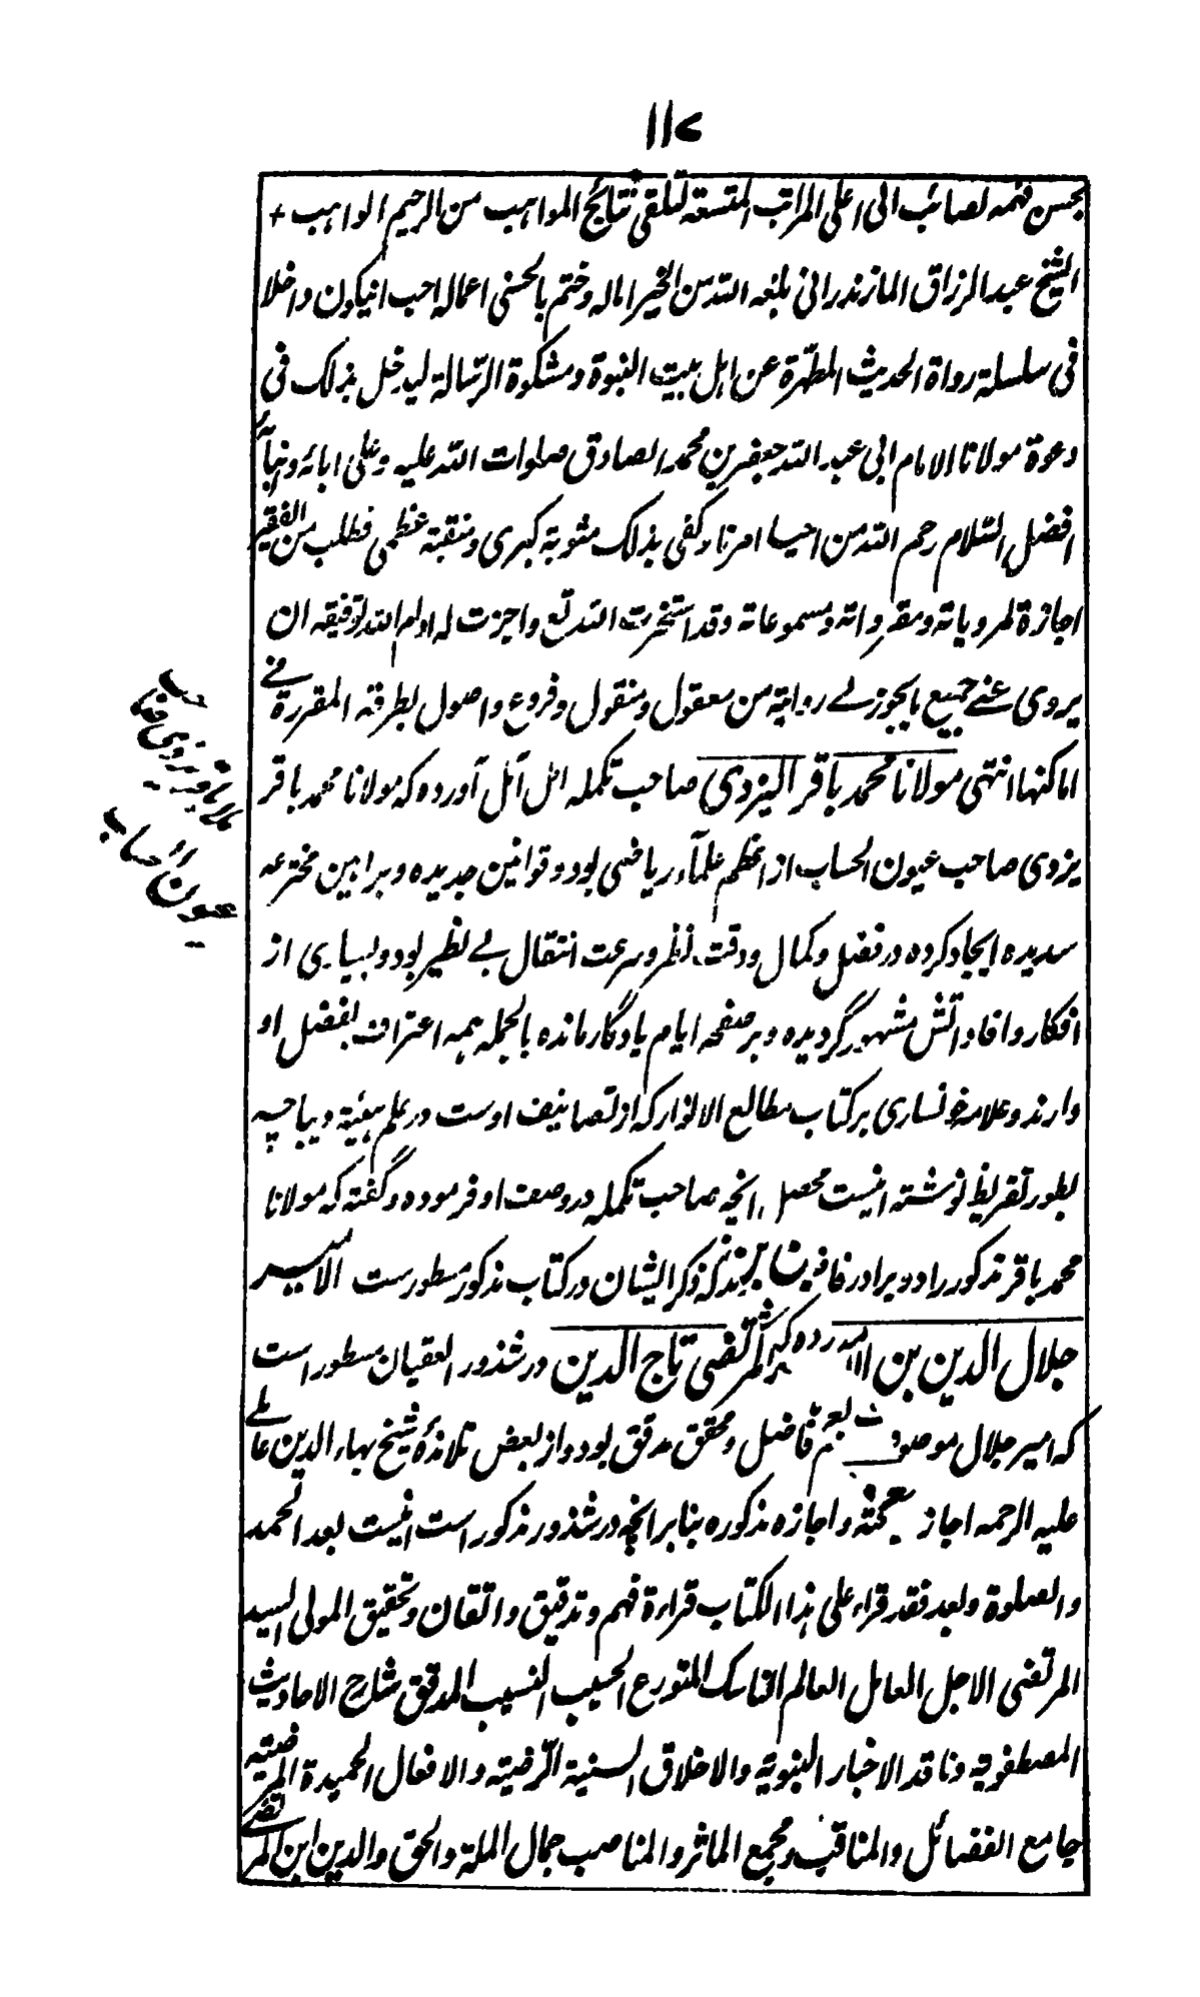 ١١٧
بحسن فهمه لصائب الی اعلی المراتب المتسعة لتلقی نتائج المواهب من الرحیم الواهب +
الشیخ عبد الرزاق المازندرانی بلغه الله من الخیر اماله وختم بالحسنی اعماله احب انیکون داخلا
فی سلسلة رواة الحدیث المطهرة عن اهل بیت النبوة ومشکوة الرسالة لیدخل بذلک فی
دعوة مولانا الامام ابی عبد الله جعفر بن محمد الصادق صلوات الله علیه وعلی ابائه
افضل السلام رحم الله من احیا امرنا وکفی بذلک مثوبة کبری ومنقبة عظمی فطلب من الفقیر
اجازة لمرویاته ومقرواته ومسموعاته وقد استخرت الله تع واجزت له ادام الله توفیقه ان
یروی عنے جمیع ما یجوز لے روایة من معقول ومنقول وفروع واصول بطرقه المقررة فے
اماکنها انتهی مولانا محمد باقر الیزدی صاحب تکمله امل آمل آورده که مولانا محمد باقر
یزدی صاحب عیون الحساب از اعظم علمآء ریاضی بود و قوانین جدیده و براهین مخترعه
سدیده ایجاد کرده در فضل و کمال و دقت نظر و سرعت انتقال بے نظیر بود و بسیاری از
افکار و افاداتش مشهور گردیده و بر صفحه ایام یادگار مانده بالجمله همه اعتراف بفضل او
دارند و علامه خونساری بر کتاب مطالع الانوار که از تصانیف اوست در علم هیئة دیباچه
بطور تقریظ نوشته اینست محصل انچه صاحب تکمله در وصف او فرموده و گفته که مولانا
محمد باقر مذکور را دو برادر فاضل که ذکر ایشان در کتاب مذکور مسطورست الامیر
جلال الدین بن المرتضی تاج الدین در شذور العقیان مسطور است
که امیر جلال موصوف فاضل و محقق مدقق بود و از بعض تلامذهٔ شیخ بهاء الدین عاملے
علیه الرحمه اجاز و اجازه مذکوره بنا بر انچه در شذور مذکور است اینست بعد الحمد
والصلوة وبعد فقد قراء علی هذا الکتاب قراءة فهم وتدقیق واتقان وتحقیق المولی السید
المرتضی الاجل العامل العالم الناسک المتورع الحسیب النسیب المدقق شارح الاحادیث
المصطفویة وناقد الاخبار النبویة والاخلاق السنیة الرضیة والافعال الحمیدة المرضیة
جامع الفضائل والمناقب ومجمع الماثر والمناصب جمال الملة والحق والدین ابن المرتضی
ملا باقر یزدی صاحب
عیون الحساب